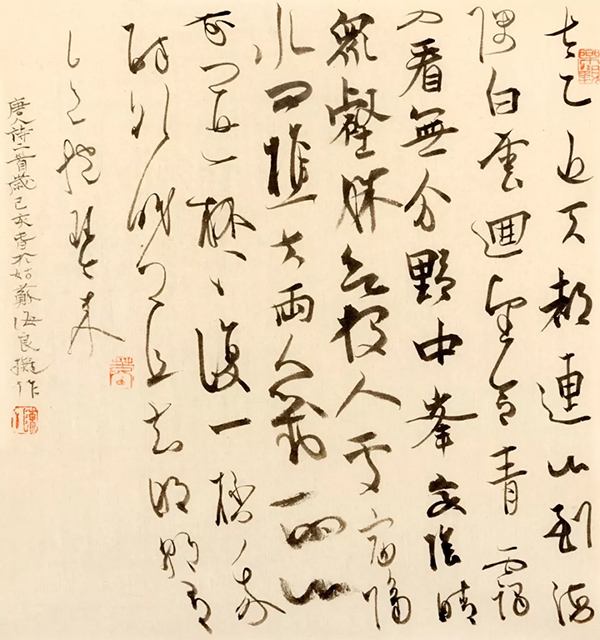 太乙近天都連山到海
隅白雲迴望合青靄
入看無分野中峯變陰晴
眾壑殊欲投人處宿隔
水問樵夫兩人對酌山
花開一杯々復一杯我
醉欲眠卿且去明朝有
意抱琴來
唐人詩二首歲己亥春於姑蘇海良擬作